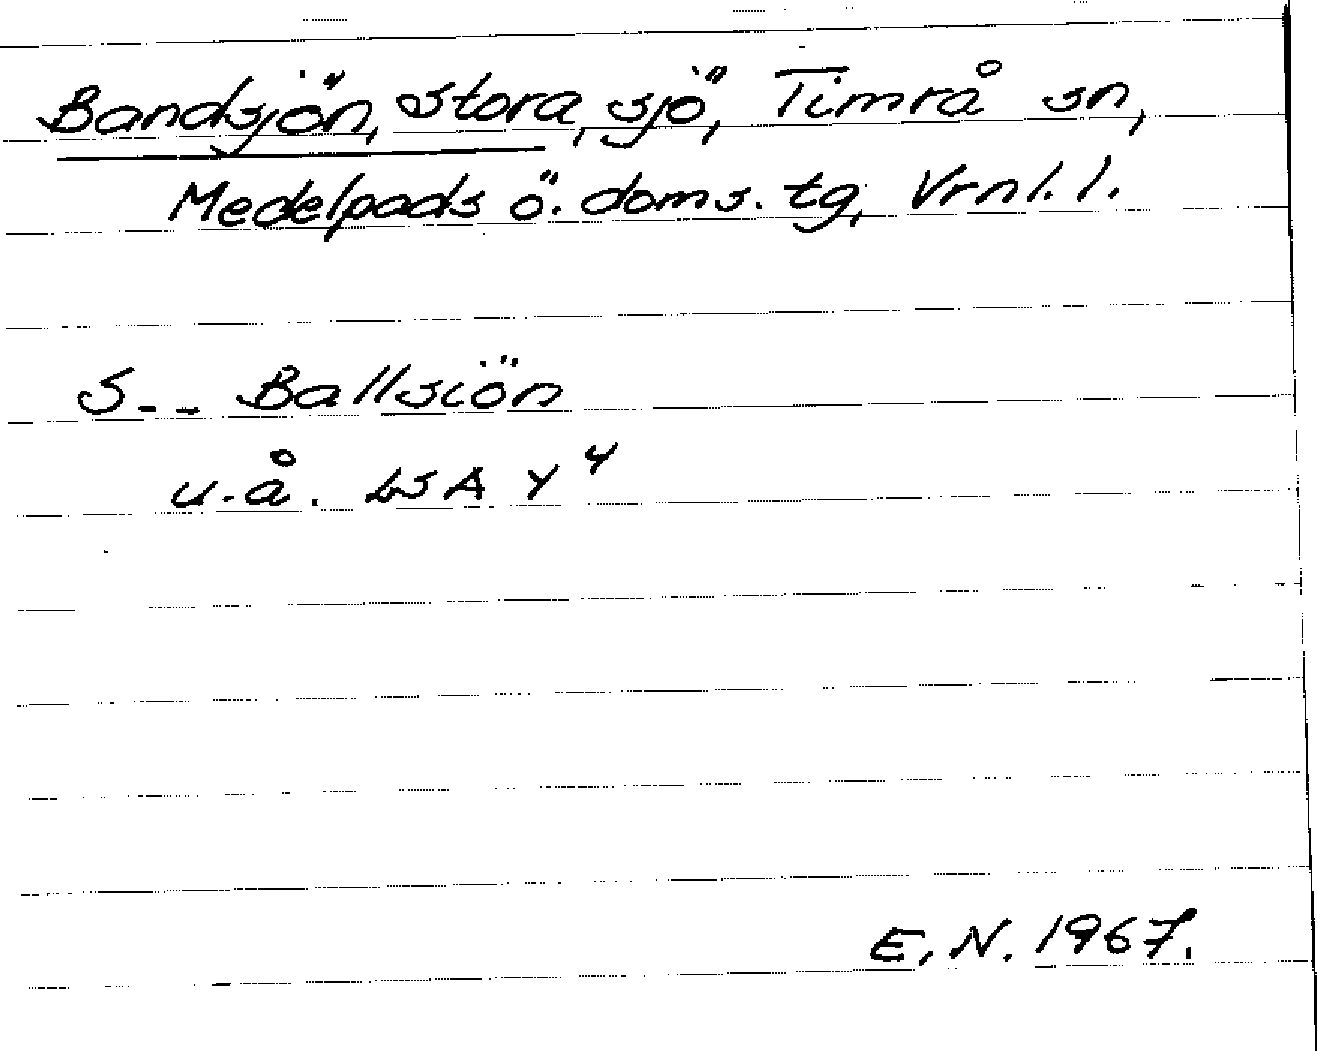 Bandsjön, Stora, sjö, Timrå sn,
Medelpads ö. doms. tg, Vrnl. l.
S-- Ballsiön
u.å. LSA Y⁴
E.N. 1967.